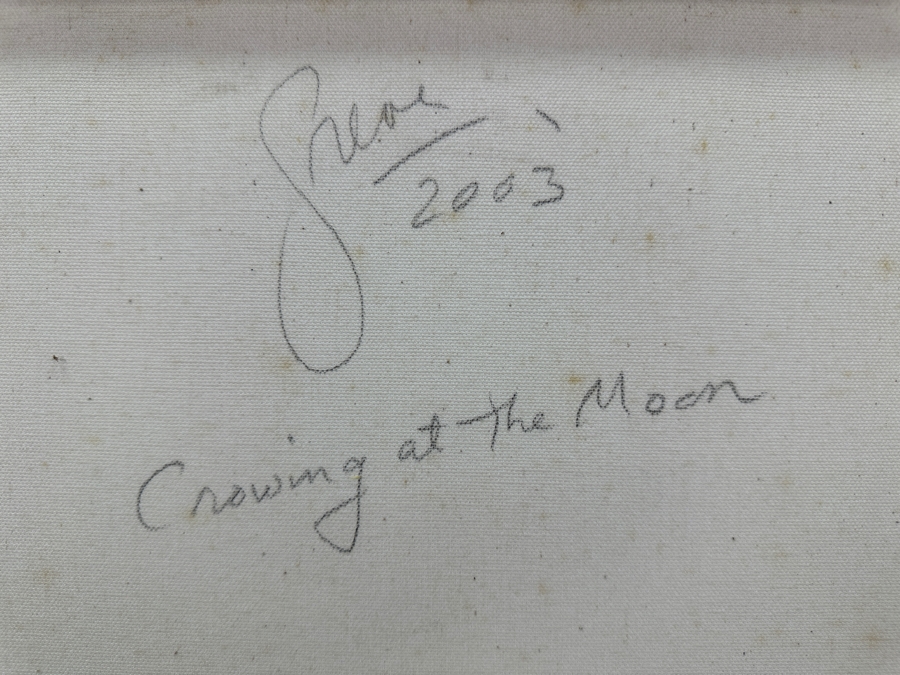 2003
Crowing at the Moon